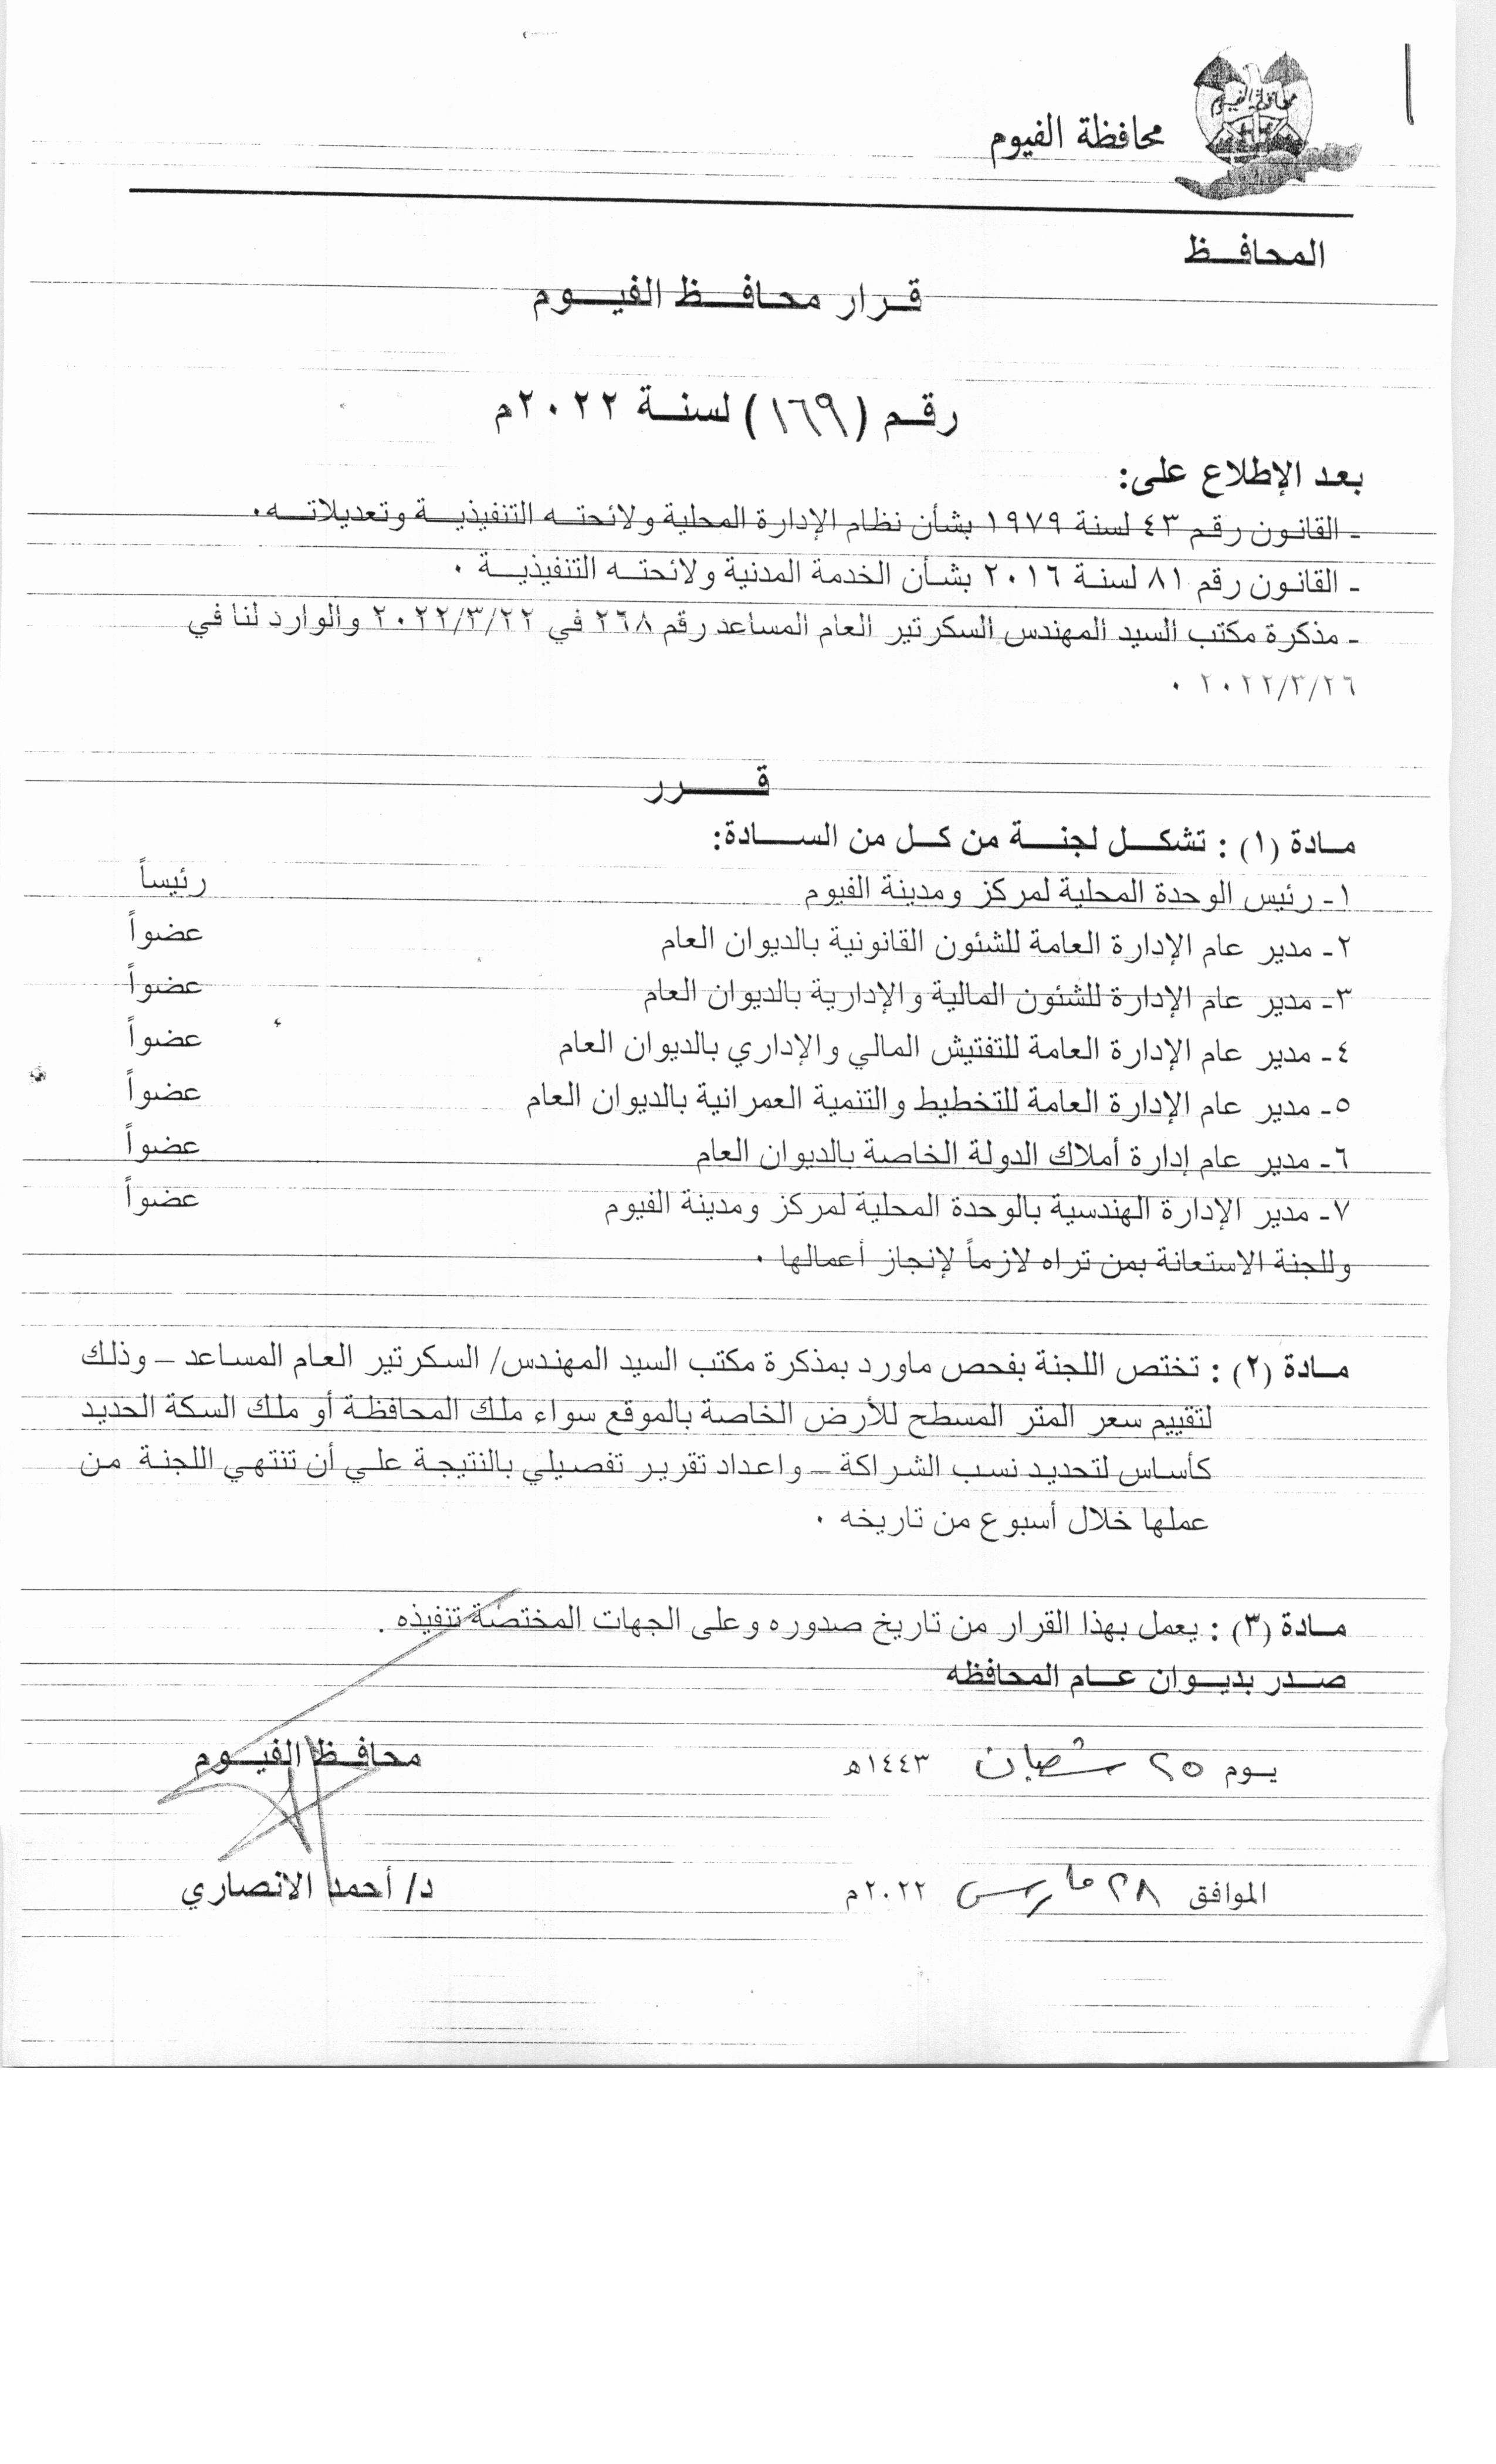 محافظة الفيوم
محافظة الفيوم
المحافـــظ
قـرار محافـــظ الفيـــوم
رقـم (١٦٩) لسنـة ٢٠٢٢م
بعد الإطلاع على:
- القانون رقم ٤٣ لسنة ١٩٧٩ بشأن نظام الإدارة المحلية ولائحتـه التنفيذيـة وتعديلاتـه.
- القانون رقم ٨١ لسنة ٢٠١٦ بشأن الخدمة المدنية ولائحتـه التنفيذيـة .
- مذكرة مكتب السيد المهندس السكرتير العام المساعد رقم ٢٦٨ في ٢٠٢٢/٣/٢٢ والوارد لنا في
٢٠٢٢/٣/٢٦ .
قــــرر
مـادة (١) : تشكـــل لجنـــة من كـــل من الســـادة:
١- رئيس الوحدة المحلية لمركز ومدينة الفيوم رئيساً
٢- مدير عام الإدارة العامة للشئون القانونية بالديوان العام عضواً
٣- مدير عام الإدارة للشئون المالية والإدارية بالديوان العام عضواً
٤- مدير عام الإدارة العامة للتفتيش المالي والإداري بالديوان العام عضواً
٥- مدير عام الإدارة العامة للتخطيط والتنمية العمرانية بالديوان العام عضواً
٦- مدير عام إدارة أملاك الدولة الخاصة بالديوان العام عضواً
٧- مدير الإدارة الهندسية بالوحدة المحلية لمركز ومدينة الفيوم عضواً
وللجنة الاستعانة بمن تراه لازماً لإنجاز أعمالها .
مـادة (٢) : تختص اللجنة بفحص ماورد بمذكرة مكتب السيد المهندس/ السكرتير العام المساعد – وذلك
لتقييم سعر المتر المسطح للأرض الخاصة بالموقع سواء ملك المحافظة أو ملك السكة الحديد
كأساس لتحديد نسب الشراكة – واعداد تقرير تفصيلي بالنتيجة علي أن تنتهي اللجنة من
عملها خلال أسبوع من تاريخه .
مـادة (٣) : يعمل بهذا القرار من تاريخ صدوره وعلى الجهات المختصة تنفيذه .
صـدر بديـوان عـام المحافظه
يـوم ٢٥ شعبان ١٤٤٣هـ
محافـظ الفيـوم
الموافق ٢٨ مارس ٢٠٢٢م
د/ أحمد الانصاري